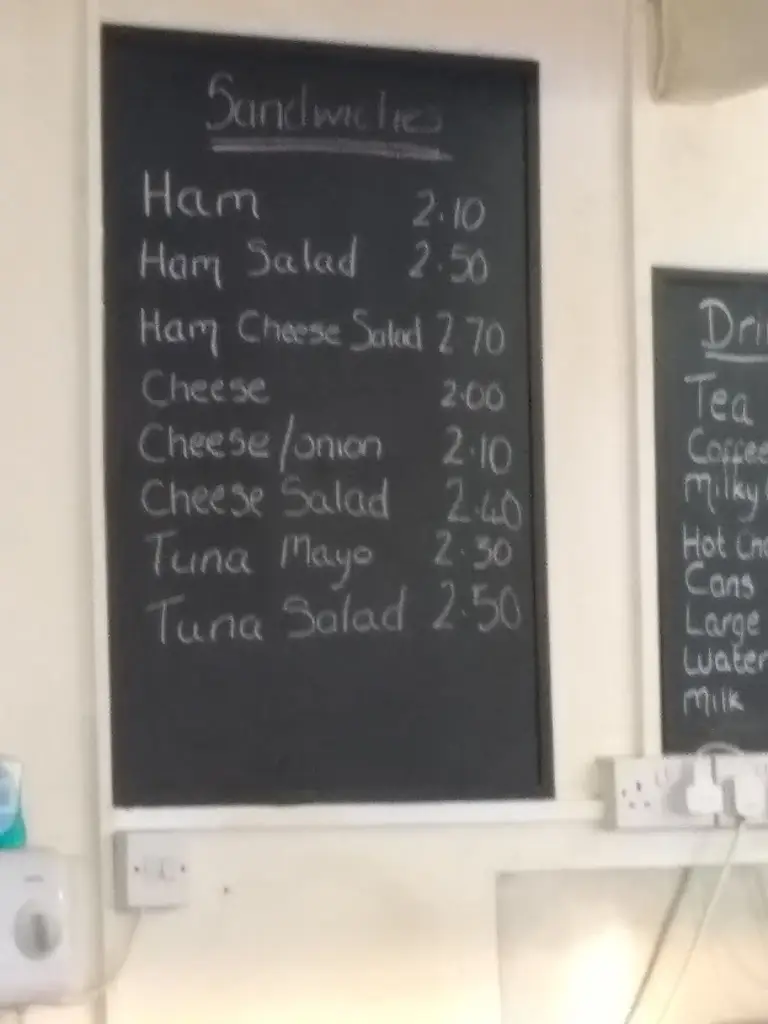 Sandwiches
Ham 2.10
Ham Salad 2.50
Ham Cheese Salad 2 70
Cheese 2.00
Cheese/onion 2.10
Cheese Salad 2.40
Tuna Mayo 2.30
Tuna Salad 2.50
Dri
Tea
Coffee
Milky
Hot Cho
Cans
Large
Water
Milk